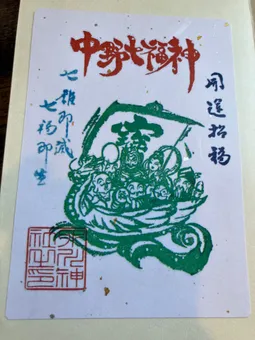 中野七福神
開運招福
七難即滅
七福即生